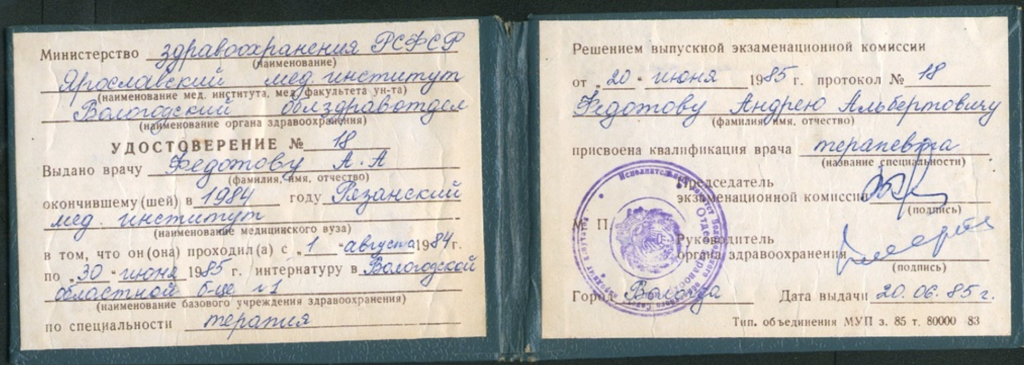 Министерство здравоохранения РСФСР
(наименование)
Ярославский мед. институт
(наименование мед. института, мед. факультета ун-та)
Вологодский облздравотдел
(наименование органа здравоохранения)
УДОСТОВЕРЕНИЕ № 18
Выдано врачу Федотову А.А
(фамилия, имя, отчество)
окончившему (шей) в 1984 году Рязанский
мед. институт
(наименование медицинского вуза)
в том, что он (она) проходил (а) с „1 " августа 1984 г.
по „30 " июня 1985 г. интернатуру в Вологодской
областной б-це №1
(наименование базового учреждения здравоохранения)
по специальности терапия
Решением выпускной экзаменационной комиссии
от „20 " июня 1985 г. протокол № 18
Федотову Андрею Альбертовичу
(фамилия, имя, отчество)
присвоена квалификация врача терапевта
(название специальности)
Председатель
экзаменационной комиссии
(подпись)
М. П.
Руководитель
органа здравоохранения
(подпись)
Город Вологда Дата выдачи 20.06.85 г.
Тип. объединения МУП з. 85 т. 80000 83